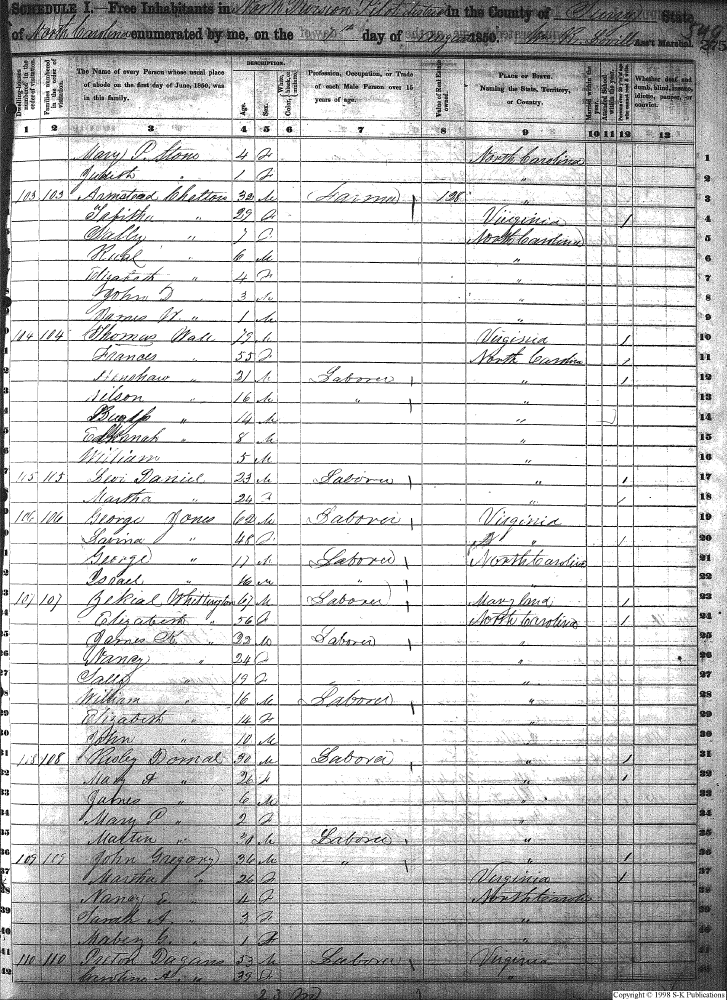 SCHEDULE I.—Free Inhabitants in North Division Pilot in the County of Surry State
of North Carolina enumerated by me, on the day of Augt 1850. Ass't Marshal. 549
275
DESCRIPTION.
Dwelling-houses numbered in the order of visitation.
Families numbered in the order of visitation.
The Name of every Person whose usual place of abode on the first day of June, 1850, was in this family.
Age.
Sex.
Color, White, black, or mulatto.
Profession, Occupation, or Trade of each Male Person over 15 years of age.
Value of Real Estate owned.
PLACE OF BIRTH. Naming the State, Territory, or Country.
Married within the year.
Attended School within the year.
Whether deaf and dumb, blind, insane, idiotic, pauper, or convict.
1 2 3 4 5 6 7 8 9 10 11 12 13
Mary P. Stone 4 F North Carolina 1
Judith " 1 F " 2
103 103 Armstead Chelton 32 M Farmer 128 " 3
Tabitha " 29 Virginia / 4
Sally " 7 F North Carolina 5
" 6 M " 6
Elizabeth " 4 F " 7
John D " 3 M " 8
James W " 1 M " 9
104 104 Thomas Wall 79 M Virginia / 10
Frances " 55 F North Carolina / 11
Henshaw " 21 M Laborer " / 12
Wilson " 16 M " " 13
" 14 M " 14
Elkanah " 8 M " 15
William 5 M " 16
105 105 Levi Daniel 23 M Laborer " / 17
Martha " 24 F " / 18
106 106 George Jones 62 M Laborer Virginia 19
" 48 F " / 20
George " 17 M Laborer North Carolina 21
Israel " 16 M " " 22
107 107 Zekial Whittington 67 M Laborer Maryland / 23
Elizabeth " 56 F North Carolina / 24
James K " 32 M Laborer " 25
Nancy " 24 F " 26
Sally " 19 F " 27
William " 16 M Laborer " 28
Elizabeth " 14 F " 29
John " 10 M " 30
108 108 Risley Domal 30 M Laborer " / 31
Mary A " 26 F " / 32
James " 6 M " 33
Mary P " 2 F " 34
Martin " 30 M Laborer " 35
109 109 John Gregory 36 M " " / 36
Martha " 26 F Virginia / 37
Nancy E " 4 F North Carolina 38
Sarah A " 3 F " 39
G. " 1 F " 40
110 110 Dugans 53 M Laborer Virginia 41
Caroline A. " 39 F " 42
23 M
Copyright © 1998 S-K Publications